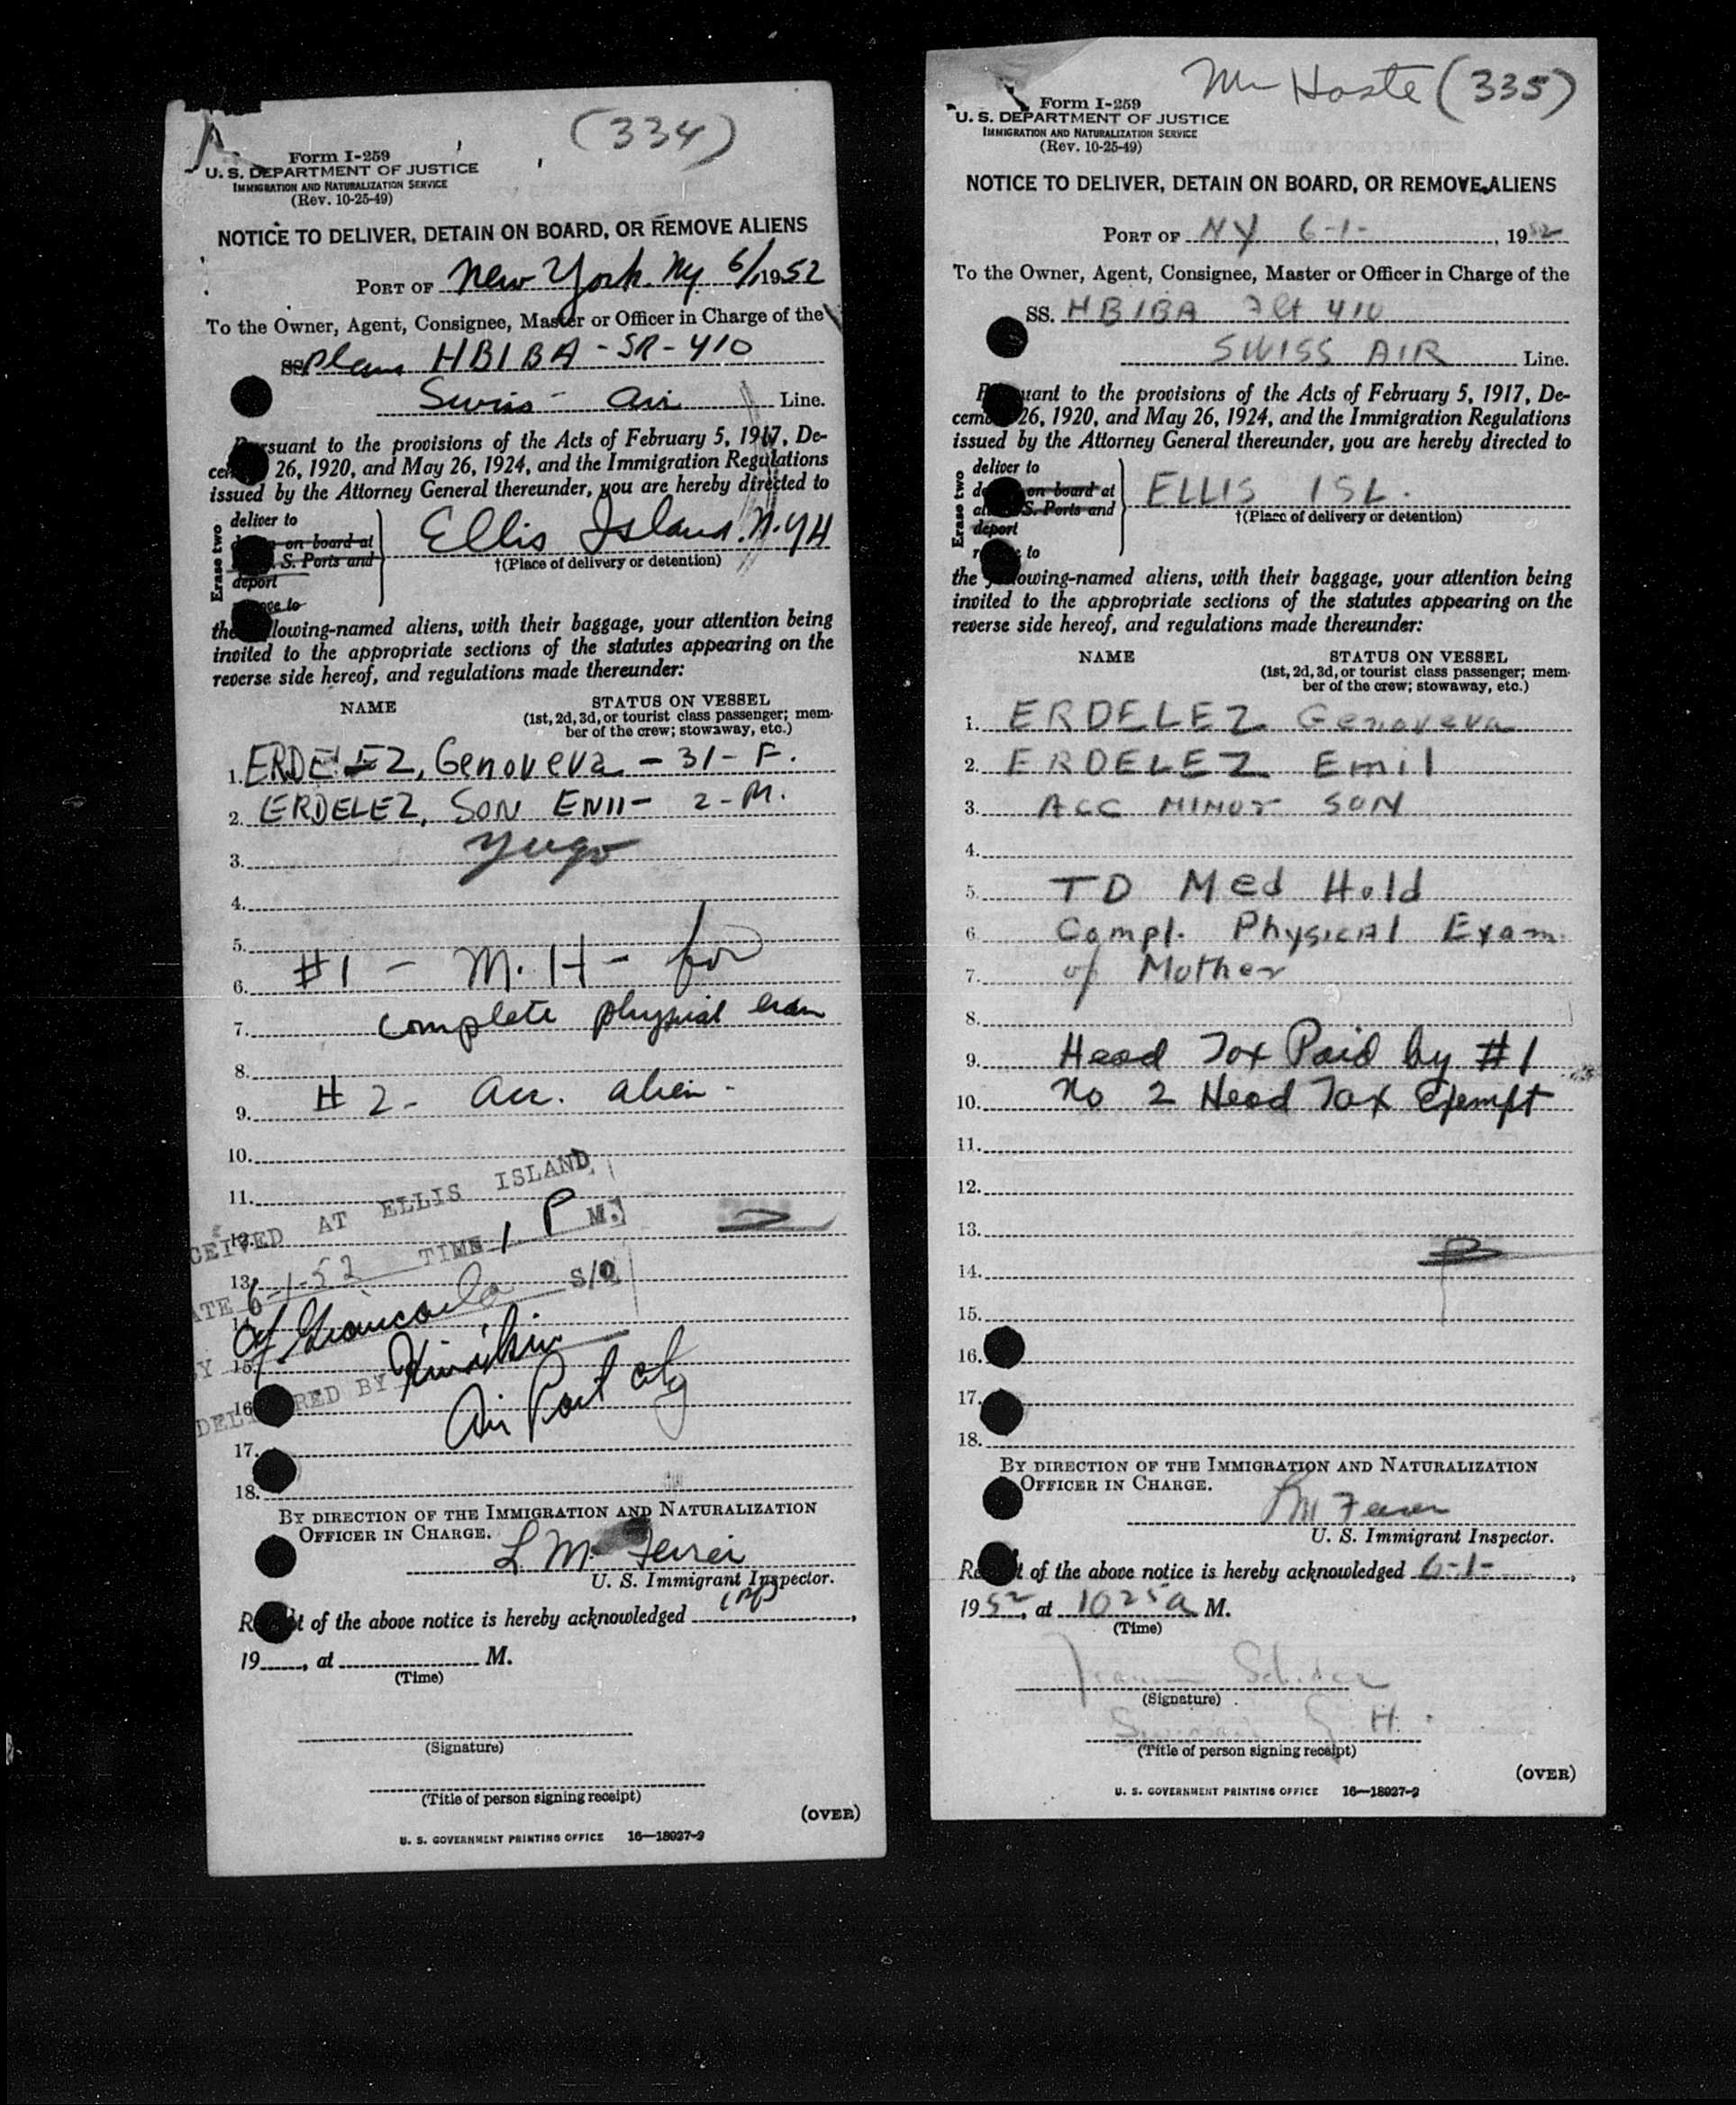 (334)
Form I-259
U. S. DEPARTMENT OF JUSTICE
IMMIGRATION AND NATURALIZATION SERVICE
(Rev. 10-25-49)
NOTICE TO DELIVER, DETAIN ON BOARD, OR REMOVE ALIENS
PORT OF New York. Ny. 6/1 1952
To the Owner, Agent, Consignee, Master or Officer in Charge of the
SS. Plane HBIBA - SR - 410
Swiss - Air Line.
Pursuant to the provisions of the Acts of February 5, 1917, De-
cember 26, 1920, and May 26, 1924, and the Immigration Regulations
issued by the Attorney General thereunder, you are hereby directed to
Erase two
deliver to
on board at
S. Ports and
deport
to
Ellis Island. N.Y.H
†(Place of delivery or detention)
the following-named aliens, with their baggage, your attention being
invited to the appropriate sections of the statutes appearing on the
reverse side hereof, and regulations made thereunder:
NAME
STATUS ON VESSEL
(1st, 2d, 3d, or tourist class passenger; mem-
ber of the crew; stowaway, etc.)
1. ERDELEZ, Genoveva - 31 - F.
2. ERDELEZ, SON - 2 - M.
3. Yugo
4.
5.
6. #1 - M. H - for
7. complete physical exam
8.
9. # 2 - acc. alien -
10.
11.
12.
13.
RECEIVED AT ELLIS ISLAND
DATE 6-1-52 TIME 1 P M.
BY S/O
15.
16.
DELIVERED BY
Air Port
17.
18.
BY DIRECTION OF THE IMMIGRATION AND NATURALIZATION
OFFICER IN CHARGE.
L M
U. S. Immigrant Inspector.
Receipt of the above notice is hereby acknowledged ,
19 , at M.
(Time)
(Signature)
(Title of person signing receipt)
(OVER)
U. S. GOVERNMENT PRINTING OFFICE 16—18027-2
Mr Haste (335)
Form I-259
U. S. DEPARTMENT OF JUSTICE
IMMIGRATION AND NATURALIZATION SERVICE
(Rev. 10-25-49)
NOTICE TO DELIVER, DETAIN ON BOARD, OR REMOVE ALIENS
PORT OF NY 6-1- , 1952
To the Owner, Agent, Consignee, Master or Officer in Charge of the
SS. HBIBA Flt 410
SWISS AIR Line.
Pursuant to the provisions of the Acts of February 5, 1917, De-
cember 26, 1920, and May 26, 1924, and the Immigration Regulations
issued by the Attorney General thereunder, you are hereby directed to
Erase two
deliver to
on board at
S. Ports and
deport
to
ELLIS ISL.
†(Place of delivery or detention)
the following-named aliens, with their baggage, your attention being
invited to the appropriate sections of the statutes appearing on the
reverse side hereof, and regulations made thereunder:
NAME
STATUS ON VESSEL
(1st, 2d, 3d, or tourist class passenger; mem-
ber of the crew; stowaway, etc.)
1. ERDELEZ Genoveva
2. ERDELEZ Emil
3. ACC MINOR SON
4.
5. TD Med Hold
6. Compl. Physical Exam
7. of Mother
8.
9. Head Tax Paid by #1
10. No 2 Head Tax Exempt
11.
12.
13.
14.
15.
16.
17.
18.
BY DIRECTION OF THE IMMIGRATION AND NATURALIZATION
OFFICER IN CHARGE.
L M
U. S. Immigrant Inspector.
Receipt of the above notice is hereby acknowledged 6-1- ,
1952, at 1025 a M.
(Time)
(Signature)
(Title of person signing receipt)
(OVER)
U. S. GOVERNMENT PRINTING OFFICE 16—18027-2